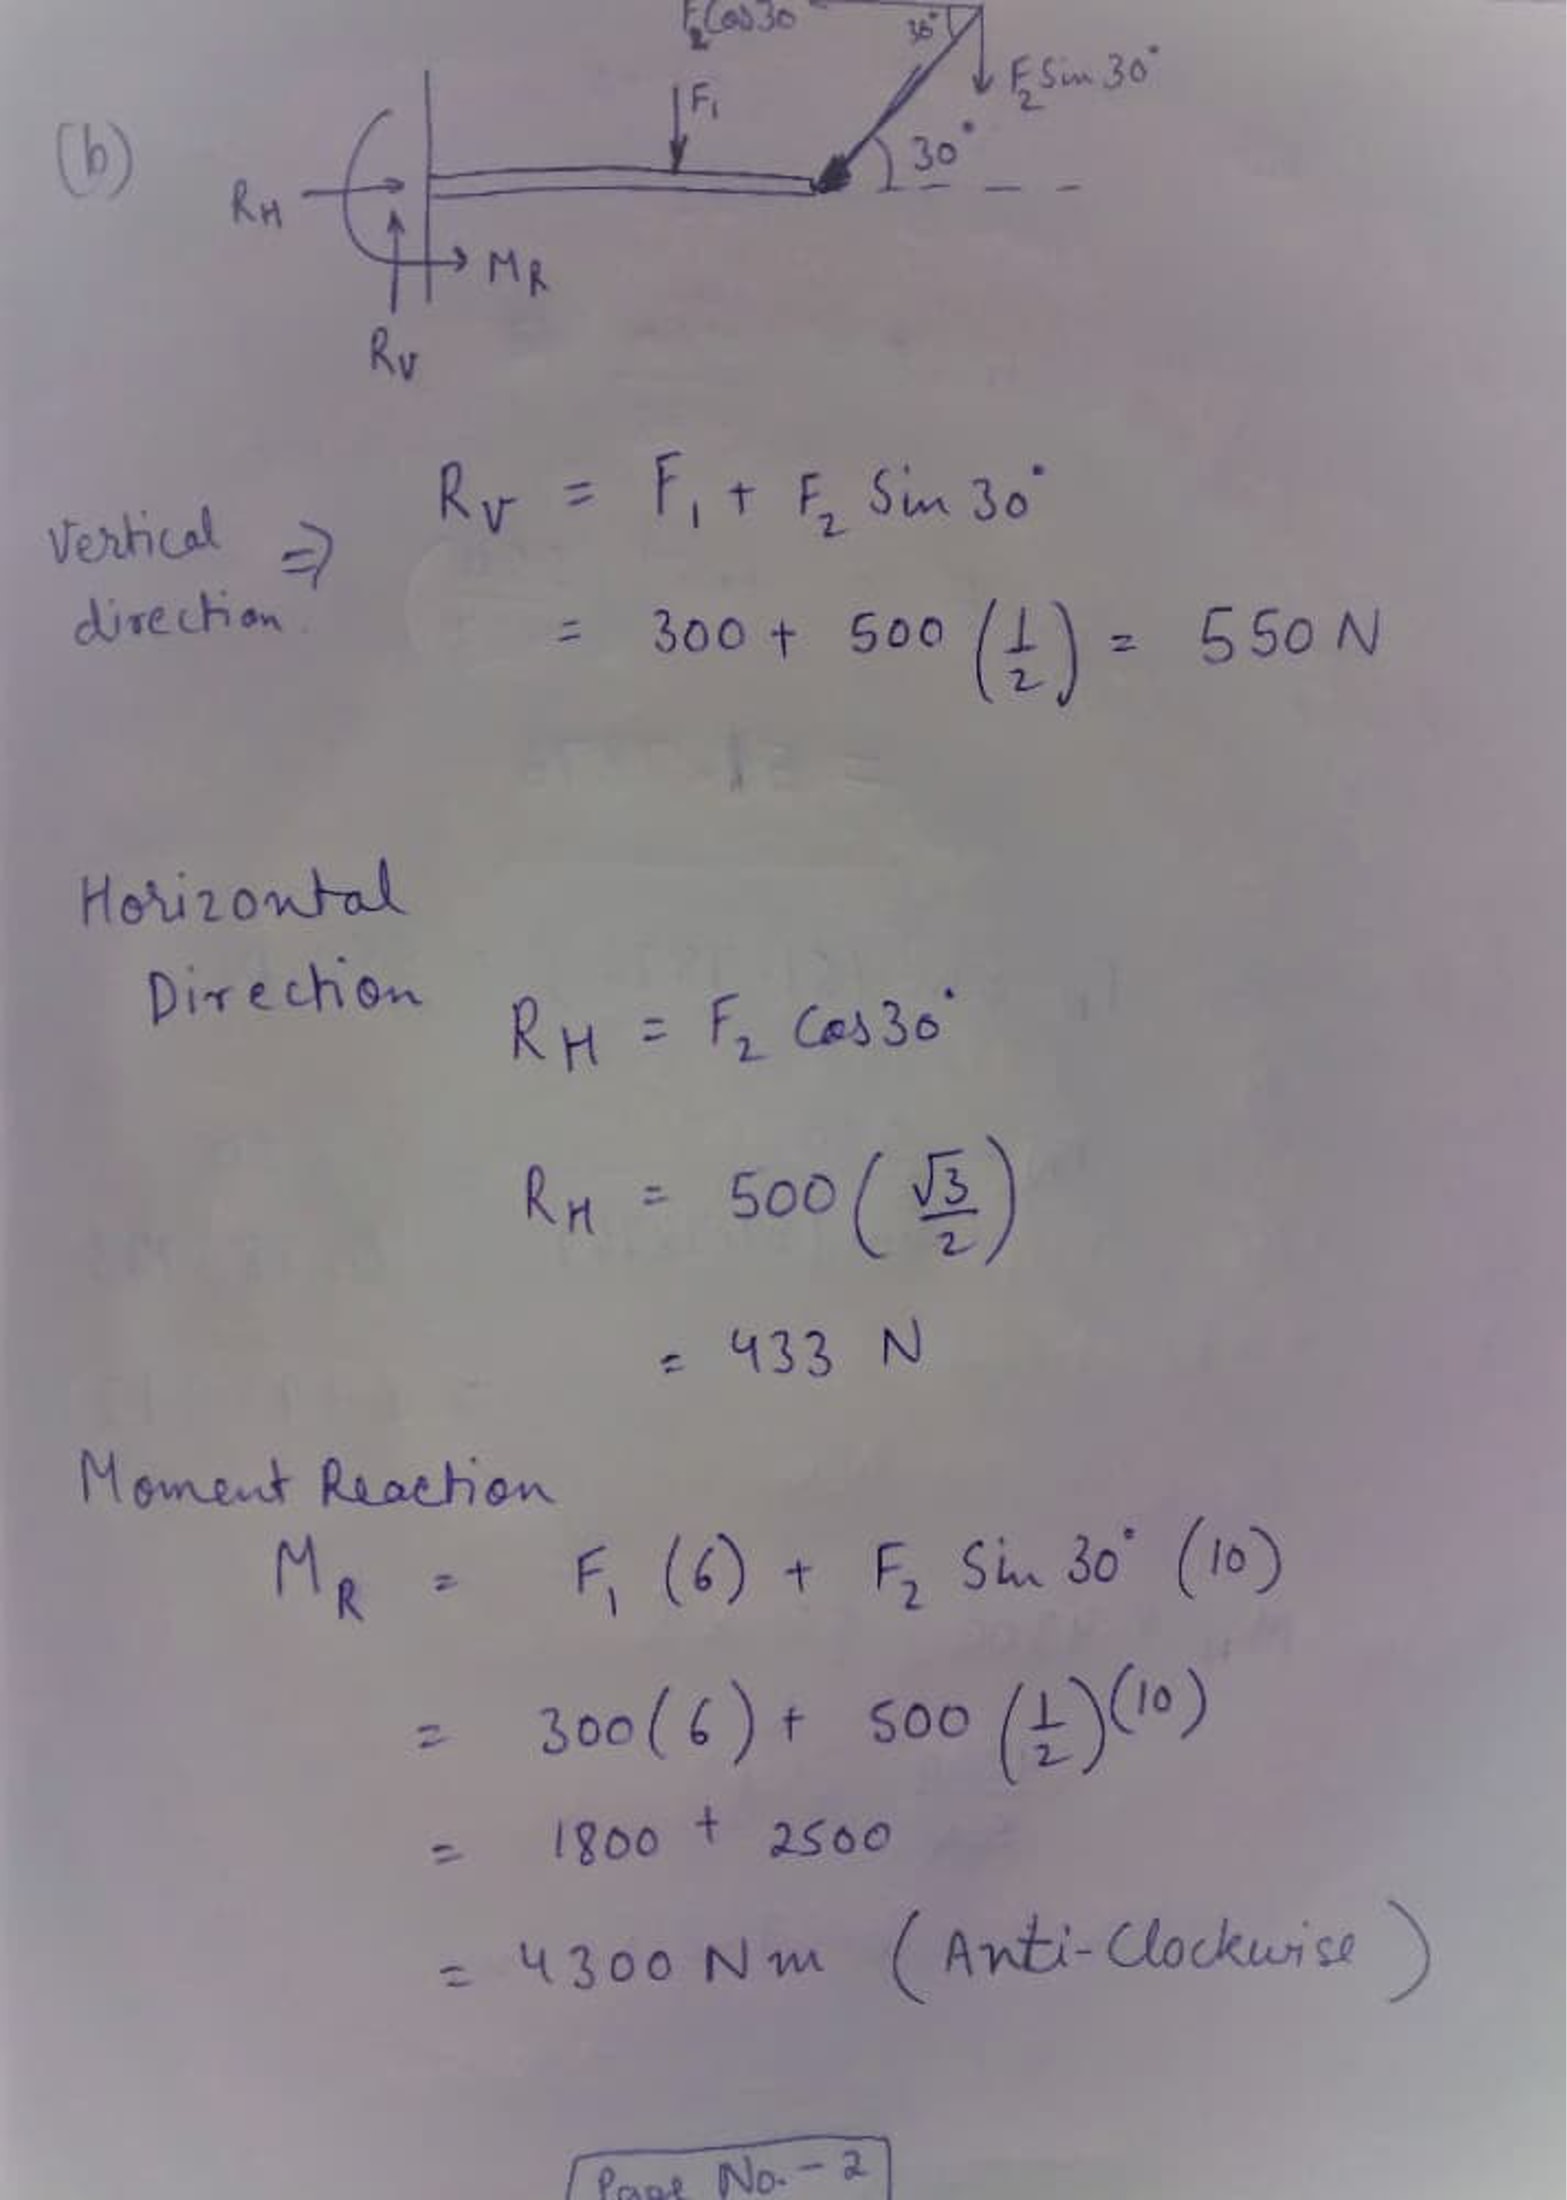 F₂Cos30
30°
F₂Sin30°
F₁
(b)
30°
R_H
M_R
R_V
Vertical direction. ⇒
R_V = F₁ + F₂ Sin30°
= 300 + 500 (1/2) = 550 N
Horizontal
Direction
R_H = F₂ Cos30°
R_H = 500 (√3/2)
= 433 N
Moment Reaction
M_R = F₁ (6) + F₂ Sin 30° (10)
= 300(6) + 500 (1/2)(10)
= 1800 + 2500
= 4300 Nm (Anti-Clockwise)
Page No. - 2